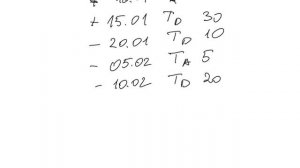 + 15.01 TD 30
- 20.01 TD 10
- 05.02 TA 5
- 10.02 TD 20